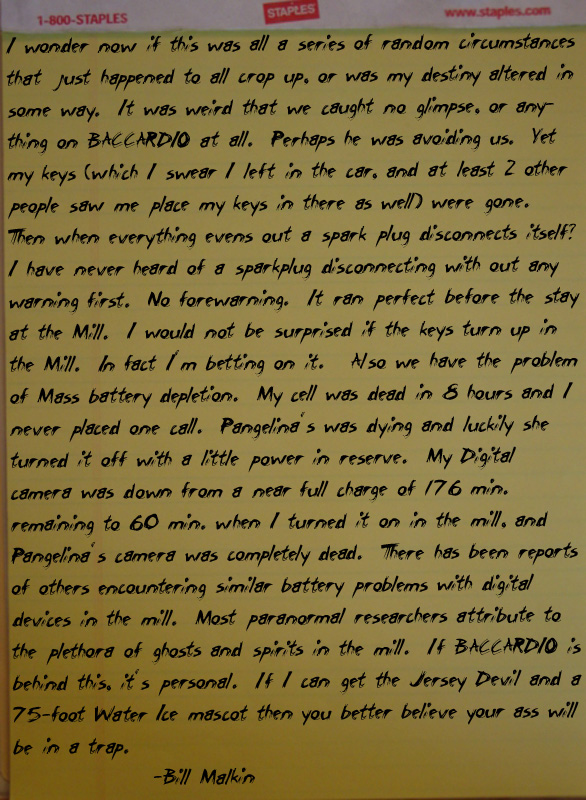 1-800-STAPLES STAPLES www.staples.com
I wonder now if this was all a series of random circumstances
that just happened to all crop up, or was my destiny altered in
some way. It was weird that we caught no glimpse, or any-
thing on BACCARDIO at all. Perhaps he was avoiding us. Yet
my keys (which I swear I left in the car, and at least 2 other
people saw me place my keys in there as well) were gone.
Then when everything evens out a spark plug disconnects itself?
I have never heard of a sparkplug disconnecting with out any
warning first. No forewarning. It ran perfect before the stay
at the Mill. I would not be surprised if the keys turn up in
the Mill. In fact I'm betting on it. Also we have the problem
of Mass battery depletion. My cell was dead in 8 hours and I
never placed one call. Pangelina's was dying and luckily she
turned it off with a little power in reserve. My Digital
camera was down from a near full charge of 176 min.
remaining to 60 min. when I turned it on in the mill, and
Pangelina's camera was completely dead. There has been reports
of others encountering similar battery problems with digital
devices in the mill. Most paranormal researchers attribute to
the plethora of ghosts and spirits in the mill. If BACCARDIO is
behind this, it's personal. If I can get the Jersey Devil and a
75-foot Water Ice mascot then you better believe your ass will
be in a trap.
-Bill Malkin